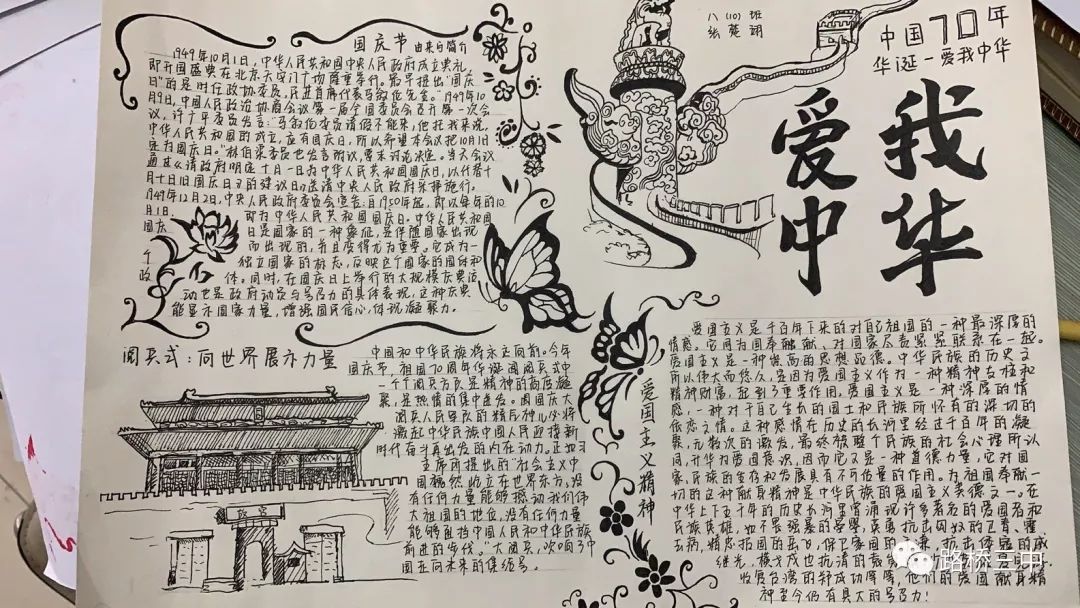 国庆节 由来与简介
1949年10月1日,中华人民共和国中央人民政府成立典礼,
即开国盛典在北京天安门广场隆重举行。最早提出"国庆
日"的是时任政协委员、民进首席代表马叙伦先生。"1949年10
月9日,中国人民政治协商会议第一届全国委员会召开第一次会
议,许广平委员发言:"马叙伦委员请假不能来,他托我来说,
中华人民共和国的成立,应有国庆日,所以希望本会议把10月1日
定为国庆日。"林伯渠委员也发言附议,要求讨论决定。当天会议
通过了请政府明定十月一日为中华人民共和国国庆日,以代替十
月十日旧国庆日的建议,送请中央人民政府采择施行。
1949年12月2日,中央人民政府委员会宣告:自1950年起,即以每年的10
月1日,即为中华人民共和国国庆日。中华人民共和国
国庆日是国家的一种象征,是伴随国家出现
而出现的,并且变得尤为重要。它成为一
个独立国家的标志,反映这个国家的国体和
政体。同时,在国庆日上举行的大规模庆典活
动也是政府动员与号召力的具体表现,这种庆典
能显示国家力量,增强国民信心,体现凝聚力。
八(10)班
张楚翊
中国70年
华诞一爱我中华
我
爱
华
中
阅兵式:向世界展示力量
中国和中华民族将永立向前。今年
国庆节,祖国70周年华诞阅阅兵式中
一个个阅兵方队是精神的高度凝
聚,是热情的集中迸发。阅国庆大
阅兵人民军队的精气神儿必将
激起中华民族中国人民迎接新
时代奋斗再出发的内在动力。正如习
主席所提出的"社会主义中
国巍然屹立在世界东方,没
有任何力量能够撼动我们伟
大祖国的地位,没有任何力量
能够阻挡中国人民和中华民族
前进的步伐。"大阅兵,吹响了中
国走向未来的集结号。
爱国主义精神
爱国主义是千百年下来的对自己祖国的一种最深厚的
情感。它同为国奉献献、对国家尽责紧紧联系在一起。
爱国主义是一种崇高的思想品德。中华民族的历史之
所以伟大而悠久,是因为爱国主义作为一种精神支柱和
精神财富,起到了重要作用。爱国主义是一种深厚的情
感,一种对于自己生长的国土和民族所怀有的深切的
依恋之情。这种感情在历史的长河里经过千百年的凝
聚,无数次的激发,最终被整个民族的社会心理所认
同,升华为爱国意识,因而它又是一种道德力量,它对国
家、民族的生存和发展具有不可估量的作用。为祖国奉献一
切的这种献身精神是中华民族的爱国主义美德之一。在
中华上下五千年的历史长河里曾涌现许多著名的爱国者和
民族英雄,也不畏强暴的晏婴,英勇抗击匈奴的卫青、霍
去病,精忠报国的岳飞,保卫家园的
继光,横戈
收复台湾的郑成功等等,他们的爱国献身精
神至今仍有具大的号召力!
路桥三中